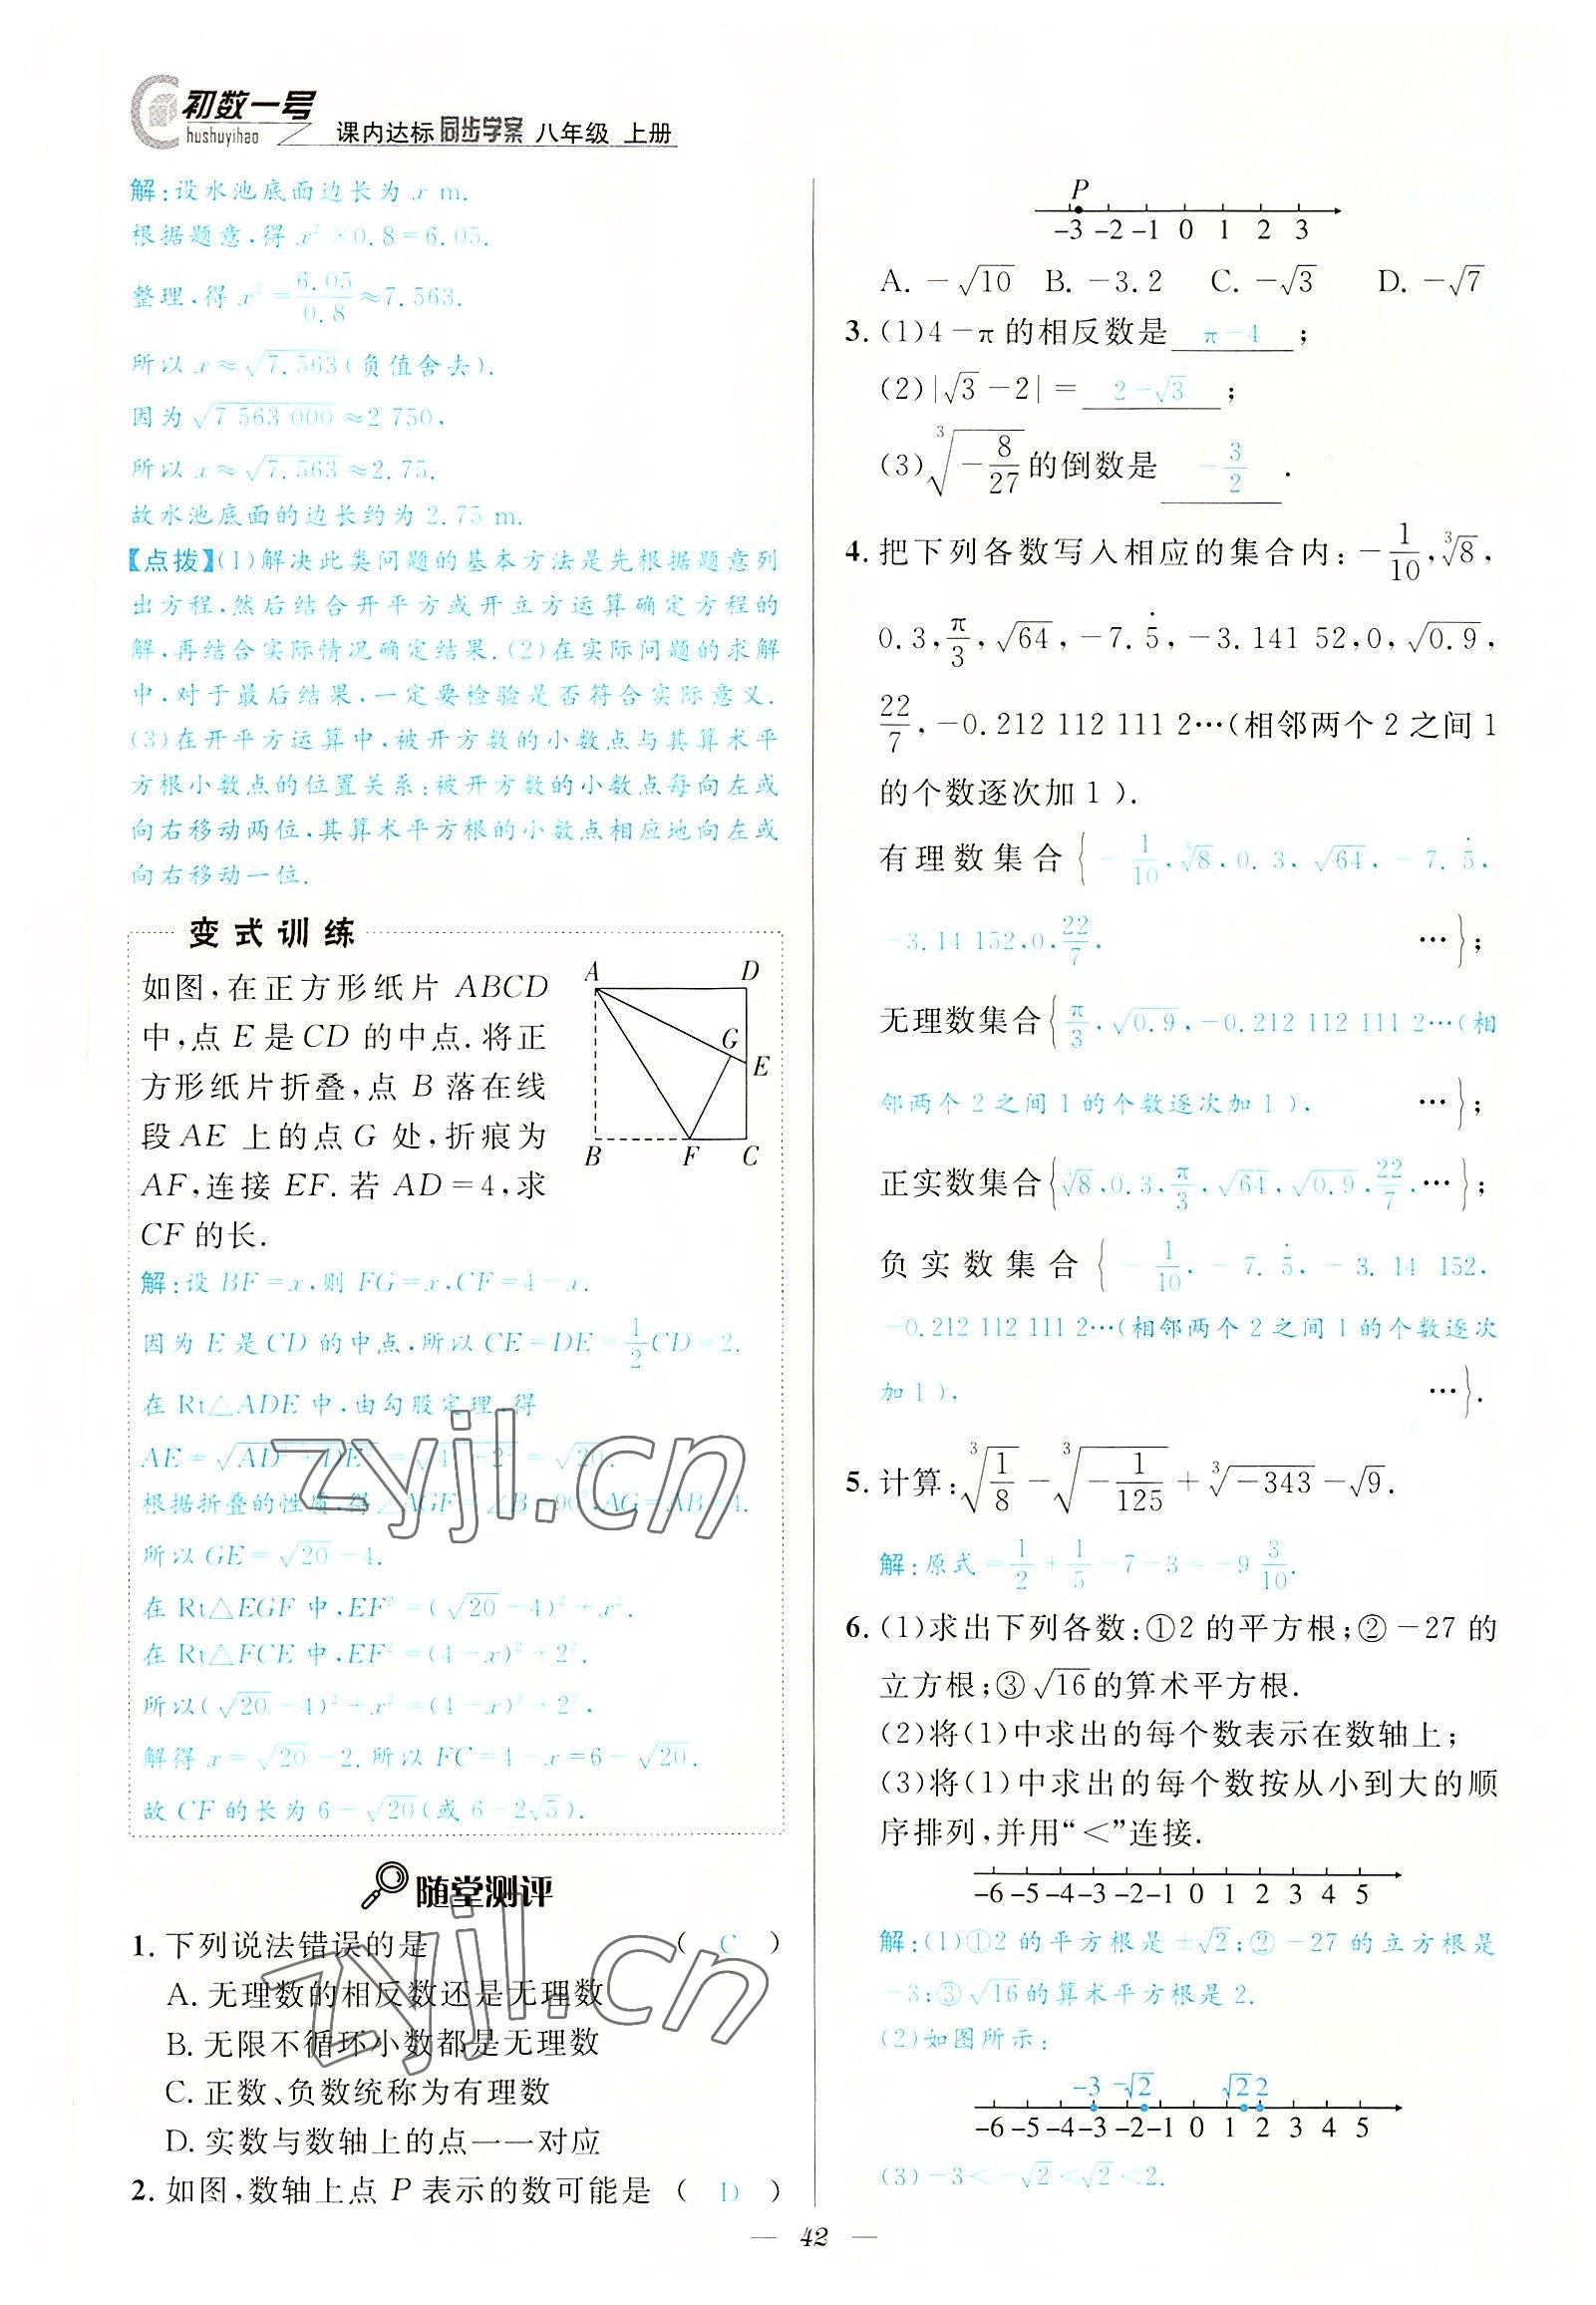 初数一号
hushuyihao
课内达标 同步学案 八年级 上册
解:设水池底面边长为 x m.
根据题意,得 x²×0.8=6.05.
整理,得 x²=6.05/0.8≈7.563.
所以 x≈√7.563(负值舍去).
因为√7 563 000≈2 750,
所以 x≈√7.563≈2.75.
故水池底面的边长约为 2.75 m.
【点拨】(1)解决此类问题的基本方法是先根据题意列
出方程,然后结合开平方或开立方运算确定方程的
解,再结合实际情况确定结果.(2)在实际问题的求解
中,对于最后结果,一定要检验是否符合实际意义.
(3)在开平方运算中,被开方数的小数点与其算术平
方根小数点的位置关系:被开方数的小数点每向左或
向右移动两位,其算术平方根的小数点相应地向左或
向右移动一位.
变式训练
如图,在正方形纸片 ABCD
中,点 E 是 CD 的中点.将正
方形纸片折叠,点 B 落在线
段 AE 上的点 G 处,折痕为
AF,连接 EF.若 AD=4,求
CF 的长.
A D
G
E
B F C
解:设 BF=x,则 FG=x,CF=4-x.
因为 E 是 CD 的中点,所以 CE=DE=1/2CD=2.
在 Rt△ADE 中,由勾股定理,得
AE=√AD²+DE²=√4²+2²=√20.
根据折叠的性质,得∠AGF=∠B=90°,AG=AB=4.
所以 GE=√20-4.
在 Rt△EGF 中,EF²=(√20-4)²+x².
在 Rt△FCE 中,EF²=(4-x)²+2².
所以(√20-4)²+x²=(4-x)²+2².
解得 x=√20-2.所以 FC=4-x=6-√20.
故 CF 的长为 6-√20(或 6-2√5).
随堂测评
1. 下列说法错误的是 ( C )
A. 无理数的相反数还是无理数
B. 无限不循环小数都是无理数
C. 正数、负数统称为有理数
D. 实数与数轴上的点一一对应
2. 如图,数轴上点 P 表示的数可能是 ( D )
P
-3 -2 -1 0 1 2 3
A. -√10 B. -3.2 C. -√3 D. -√7
3. (1)4-π的相反数是 π-4 ;
(2)|√3-2|= 2-√3 ;
(3)∛(-8/27)的倒数是 -3/2 .
4. 把下列各数写入相应的集合内:-1/10,∛8,
0.3,π/3,√64,-7.5̇,-3.141 52,0,√0.9,
22/7,-0.212 112 111 2…(相邻两个 2 之间 1
的个数逐次加 1).
有理数集合{-1/10,∛8,0.3,√64,-7.5̇,
-3.14 152,0,22/7, …};
无理数集合{π/3,√0.9,-0.212 112 111 2…(相
邻两个 2 之间 1 的个数逐次加 1), …};
正实数集合{∛8,0.3,π/3,√64,√0.9,22/7,…};
负实数集合{-1/10,-7.5̇,-3.14 152,
-0.212 112 111 2…(相邻两个 2 之间 1 的个数逐次
加 1), …}.
5. 计算:∛(1/8)-∛(-1/125)+∛-343-√9.
解:原式=1/2+1/5-7-3=-9 3/10.
6. (1)求出下列各数:①2 的平方根;②-27 的
立方根;③√16的算术平方根.
(2)将(1)中求出的每个数表示在数轴上;
(3)将(1)中求出的每个数按从小到大的顺
序排列,并用“<”连接.
-6 -5 -4 -3 -2 -1 0 1 2 3 4 5
解:(1)①2 的平方根是±√2;②-27 的立方根是
-3;③√16的算术平方根是 2.
(2)如图所示:
-3 -√2 √2 2
-6 -5 -4 -3 -2 -1 0 1 2 3 4 5
(3)-3<-√2<√2<2.
— 42 —
zyjl.cn
zyjl.cn